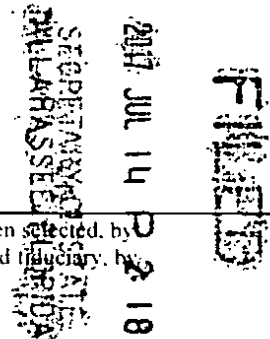 FILED
2017 JUL 14 P 2 18
SECRETARY OF STATE
TALLAHASSEE FLORIDA
en selected, by
d fiduciary, by